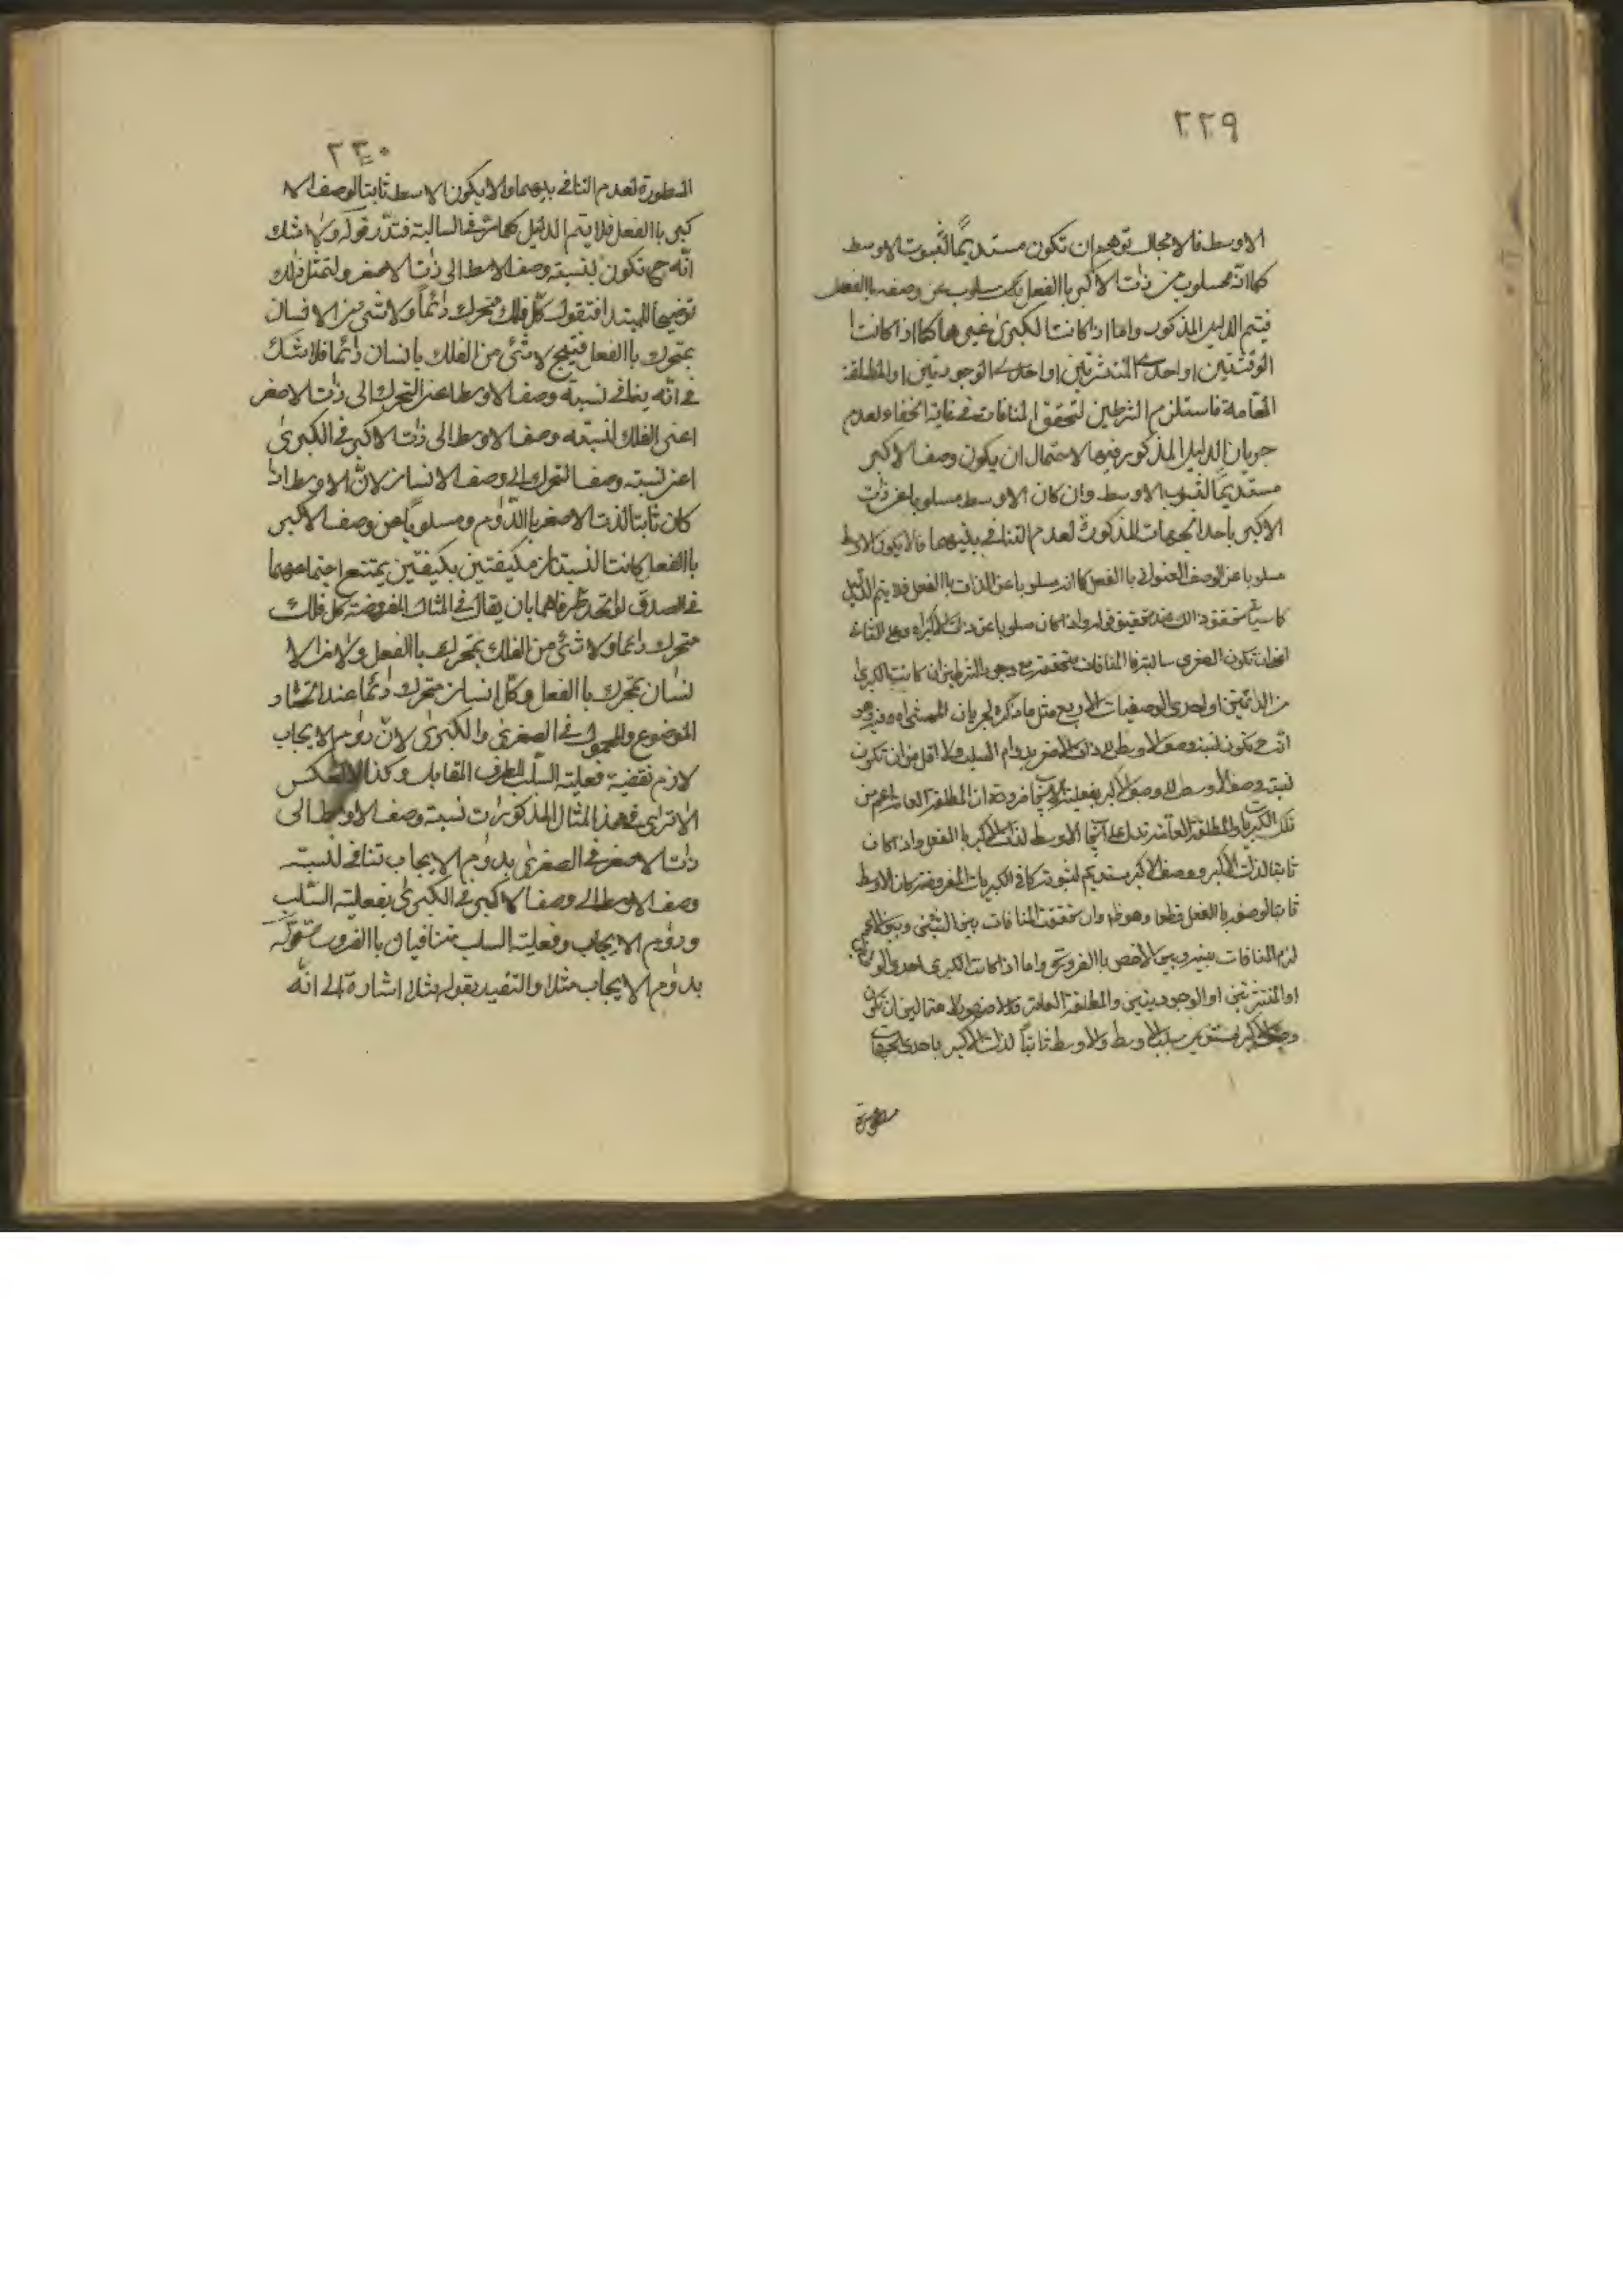 ٢٢٩
الاوسط فلا مجال توهم ان تكون مستديمًا لثبوت الاوسط
كما انه مسلوب من ذات الاكبر باالفعل كك مسلوب عن وصفه باالفعل
فيتم الدليل المذكور واما اذا كانت الكبرى غيرها كما اذا كانت
الوقتيتين او احدى المنتشرتين او احدى الوجوديتين او المطلقة
العامة فاستلزم الشرطين لتحقق المنافات في غاية الخفاء لعدم
جريان الدليل المذكور فيها لاحتمال ان يكون وصف الاكبر
مستديمًا لثبوت الاوسط وان كان الاوسط مسلوبا عن ذات
الاكبر باحد الجهات المذكورة لعدم التنافي بينهما فلا يكون الاوسط
مسلوبا عن الوصف العنواني باالفعل كما انه مسلوبا عن الذات باالفعل فلا يتم الدليل
كما سيأتي تحقق ذالك عند تحقيق قوله واذا كان مسلوبا عن ذات الاكبر اه وعلى الثاني
اعنى ان تكون الصغرى سالبة فالمنافات متحققة مع وجود الشرطين ان كانت الكبرى
من الدائمتين او احدى الوصفيات الاربع مثل ما ذكره لجريان
انه ح تكون نسبة وصف الاوسط الى ذات الاصغر بدوام السلب ولا اقل من ان تكون
نسبة وصف الاوسط الى وصف الاكبر بفعلية الايجاب ضرورة ان المطلقة العامة اعم من
تلك الكبريات والمطلقة العامة تدل على ايجاب الاوسط لذات الاكبر باالفعل واذا كان
ثابتا لذات الاكبر ووصف الاكبر مستديم لثبوته كما في الكبريات المفروضة كان الاوسط
ثابتا لوصفه باالفعل قطعا وهو ظ واذا تحققت المنافات بين الشئ وبين الاعم
لزم المنافات بينه وبين الاخص باالضرورة واما اذا كانت الكبرى احدى
او المنتشرتين او الوجوديتين والمطلقة العامة فلا لاحتمال ان تكون
وصف الاكبر مستديم سلب الاوسط والاوسط ثابتًا لذات الاكبر باحدى الجهات
٢٣٠
المسطورة لعدم التنافي بينهما ولا يكون الاوسط ثابتا لوصف الا
كبر باالفعل فلا يتم الدليل كما مر في السالبة فتدبر قوله ولا شك
انّه ح تكون نسبة وصف الاوسط الى ذات الاصغر ولتمثل ذلك
توضيحا للمبتدا فنقول كل فلك متحرك دائمًا ولا شئ من الانسان
بمتحرك باالفعل فينتج لا شئ من الفلك بانسان دائمًا فلا شك
في انّه ينافي نسبة وصف الاوسط اعنى التحرك الى ذات الاصغر
اعنى الفلك لنسبة وصف الاوسط الى ذات الاكبر في الكبرىٰ
اعنى نسبة وصف التحرك الى وصف الانسان لانّ الاوسط اذا
كان ثابتا لذات الاصغر باالدّوام ومسلوبًا عن وصف الاكبر
باالفعل كانت النسبتان مكيفتين بكيفيتين يمتنع اجتماعهما
في الصدق لو اتحد طرفاهما بان يقال في المثال المفروضة كل فلك
متحرك دائما ولا شئ من الفلك بمتحرك باالفعل ولا من الا
نسان بمتحرك باالفعل وكل انسان متحرك دائمًا عند اتحاد
الموضوع والمحمول في الصغرىٰ والكبرىٰ لانّ دوام الايجاب
لازم نقضية فعلية السلب للطرف المقابل وكذا العكس
الا ترى في هذا المثال المذكور ان نسبة وصف الاوسط الى
ذات الاصغر في الصغرىٰ بدوام الايجاب تنافي لنسبة
وصف الاوسط الى وصف الاكبر في الكبرىٰ بفعلية السّلب
ودوام الايجاب وفعلية السلب متنافيان باالضرورة قوله
بدوام الايجاب مثلا والتقييد بقوله مثلا اشارة الى انّه